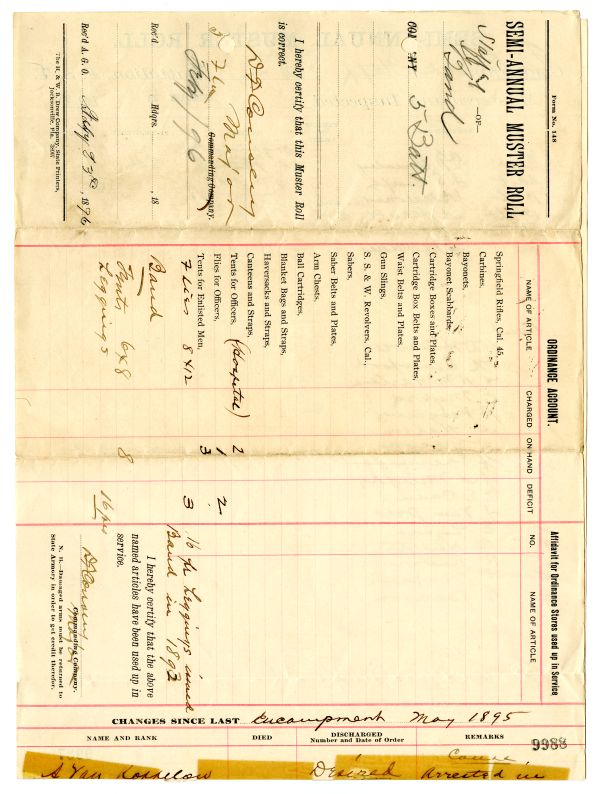 Form No. 148
SEMI-ANNUAL MUSTER ROLL
—OF—
Staff &
Band
5 Batt.
I hereby certify that this Muster Roll
is correct.
Major
Commanding Company.
Feby 1/96
Rec'd Hdqrs. , 18
Rec'd A. G. O. Feby 23rd, 1896
The H. & W. B. Drew Company, State Printers,
Jacksonville, Fla.
ORDINANCE ACCOUNT.
NAME OF ARTICLE CHARGED ON HAND DEFICIT
Springfield Rifles, Cal. 45,
Carbines,
Bayonets,
Bayonet Scabbards,
Cartridge Boxes and Plates,
Cartridge Box Belts and Plates,
Waist Belts and Plates,
Gun Slings,
S. S. & W. Revolvers, Cal.,
Sabers,
Saber Belts and Plates,
Arm Chests,
Ball Cartridges,
Blanket Bags and Straps,
Haversacks and Straps,
Canteens and Straps,
Tents for Officers, (Hospital) 2
Flies for Officers, 1 2
Tents for Enlisted Men, 3
Flies 8 x 12 3
Band
Tents 6x8 8
Leggings 16 prs
Affidavit for Ordinance Stores used up in Service
NO. NAME OF ARTICLE
16 pr Leggings issued
Band in 1892
I hereby certify that the above
named articles have been used up in
service.
Commanding Company.
N. B.—Damaged arms must be returned to
State Armory in order to get credit therefor.
CHANGES SINCE LAST Encampment May 1895
9988
NAME AND RANK DIED DISCHARGED REMARKS
Number and Date of Order
Cause
Desired Arrested in